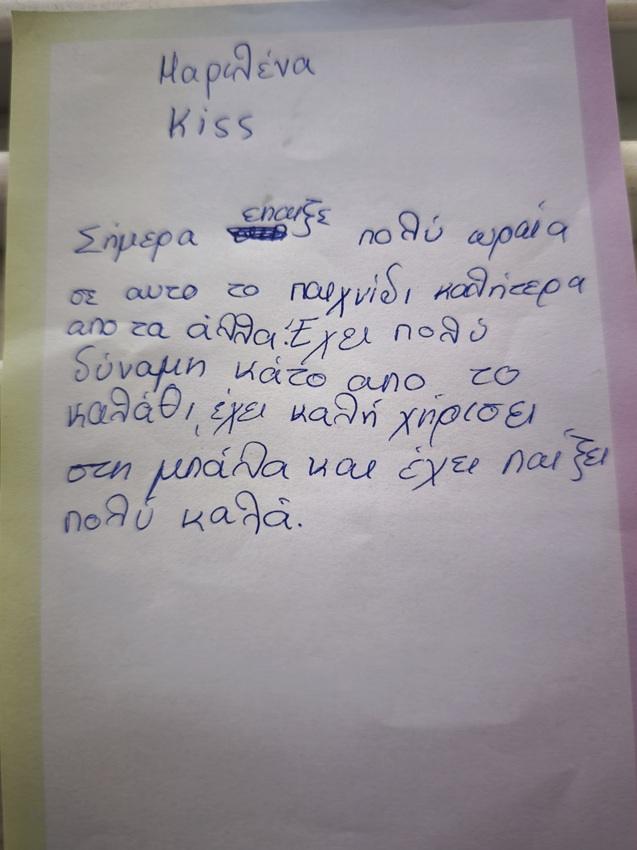 Μαριλένα
Kiss
Σήμερα έπαιξε πολύ ωραία
σε αυτο το παιχνίδι καλήτερα
απο τα άλλα. Έχει πολύ
δύναμη κάτο απο το
καλάθι, έχει καλή χήρισει
στη μπάλα και έχει παιξει
πολύ καλά.